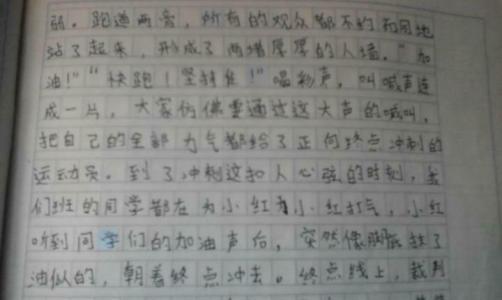 弱。跑道两旁，所有的观众都不约而同地
站了起来，形成了两堵厚厚的人墙。"加
油！""快跑！坚持住！"喝彩声，叫喊声连
成一片，大家仿佛要通过这大声的喊叫，
把自己的全部力气都给了正向终点冲刺的
运动员。到了冲刺这扣人心弦的时刻，我
们班的同学都在为小红为小红打气，小红
听到同学们的加油声后，突然像脚底抹了
油似的，朝着终点冲去。终点线上，裁判